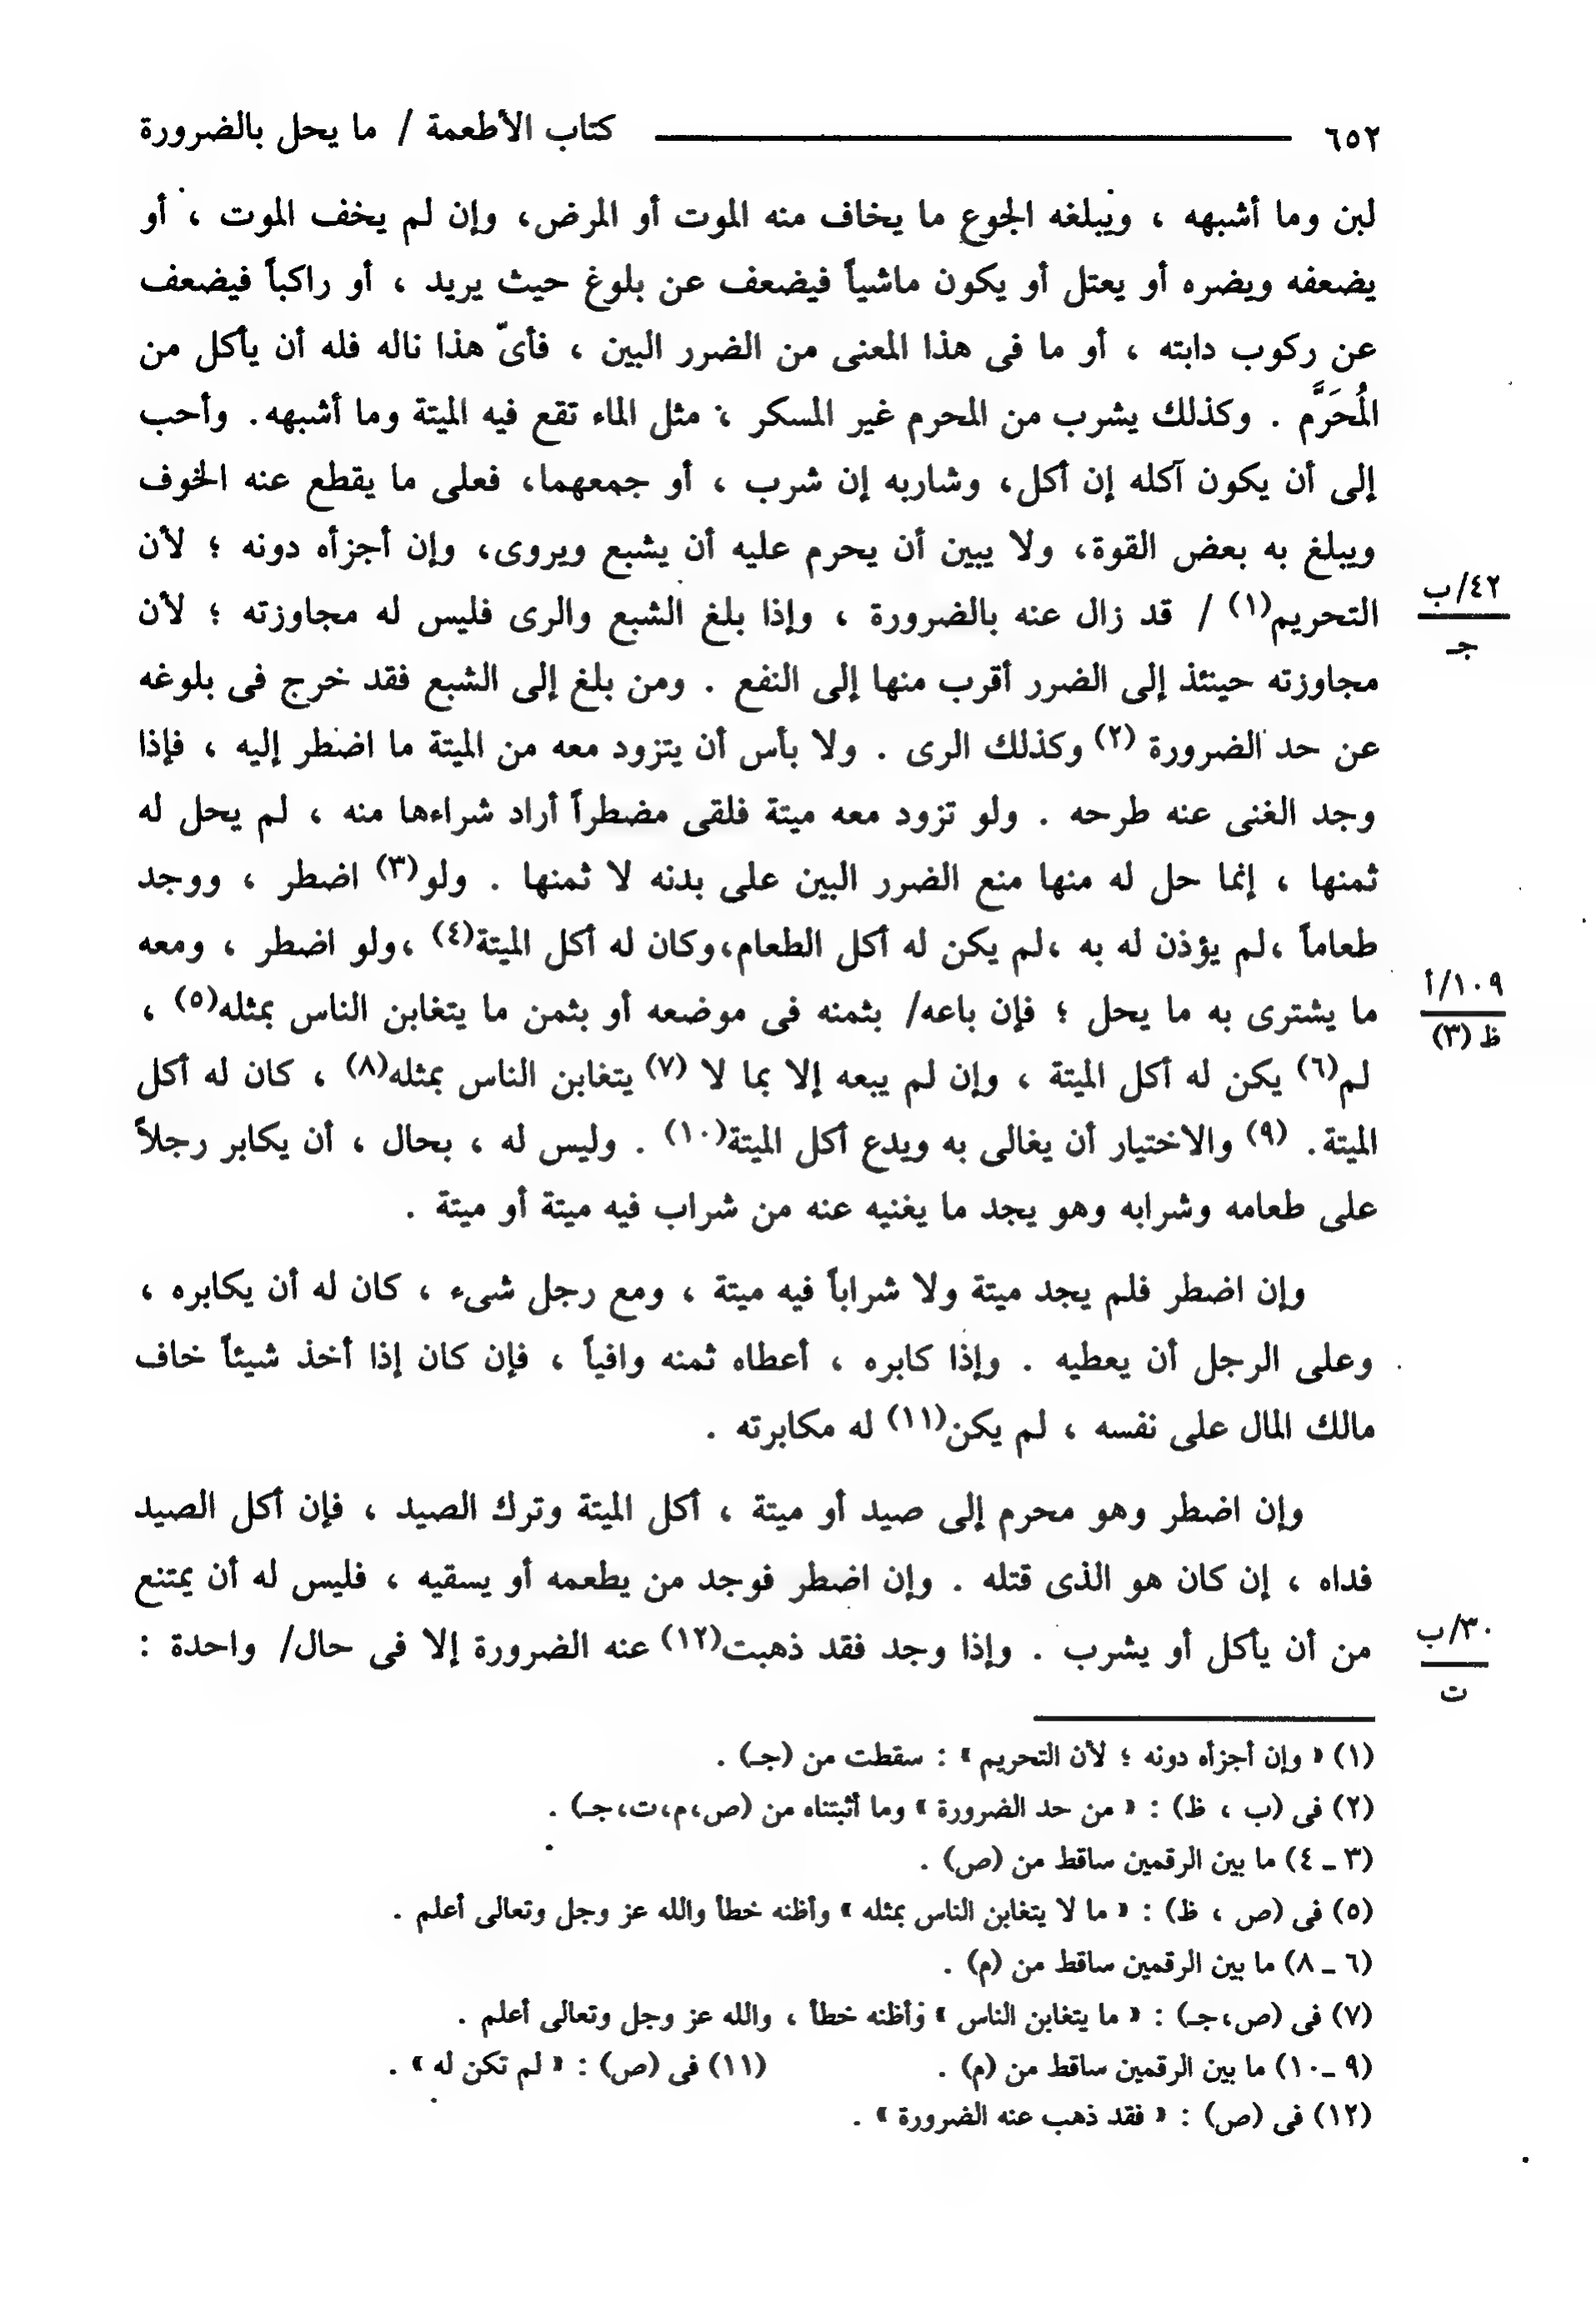 ٦٥٢ كتاب الأطعمة / ما يحل بالضرورة
لبن وما أشبهه ، ويبلغه الجوع ما يخاف منه الموت أو المرض، وإن لم يخف الموت ، أو
يضعفه ويضره أو يعتل أو يكون ماشياً فيضعف عن بلوغ حيث يريد ، أو راكباً فيضعف
عن ركوب دابته ، أو ما فى هذا المعنى من الضرر البين ، فأىّ هذا ناله فله أن يأكل من
المُحَرَّم . وكذلك يشرب من المحرم غير المسكر ، مثل الماء تقع فيه الميتة وما أشبهه. وأحب
إلى أن يكون آكله إن أكل، وشاربه إن شرب ، أو جمعهما، فعلى ما يقطع عنه الخوف
ويبلغ به بعض القوة، ولا يبين أن يحرم عليه أن يشبع ويروى، وإن أجزأه دونه ؛ لأن
التحريم(١) / قد زال عنه بالضرورة ، وإذا بلغ الشبع والرى فليس له مجاوزته ؛ لأن
٤٢/ب
جـ
مجاوزته حينئذ إلى الضرر أقرب منها إلى النفع . ومن بلغ إلى الشبع فقد خرج فى بلوغه
عن حد الضرورة (٢) وكذلك الرى . ولا بأس أن يتزود معه من الميتة ما اضطر إليه ، فإذا
وجد الغنى عنه طرحه . ولو تزود معه ميتة فلقى مضطراً أراد شراءها منه ، لم يحل له
ثمنها ، إنما حل له منها منع الضرر البين على بدنه لا ثمنها . ولو(٣) اضطر ، ووجد
طعاماً ،لم يؤذن له به ،لم يكن له أكل الطعام،وكان له أكل الميتة(٤) ،ولو اضطر ، ومعه
ما يشترى به ما يحل ؛ فإن باعه/ بثمنه فى موضعه أو بثمن ما يتغابن الناس بمثله(٥) ،
١٠٩/أ
ظ (٣)
لم(٦) يكن له أكل الميتة ، وإن لم يبعه إلا بما لا (٧) يتغابن الناس بمثله(٨) ، كان له أكل
الميتة. (٩) والاختيار أن يغالى به ويدع أكل الميتة(١٠) . وليس له ، بحال ، أن يكابر رجلاً
على طعامه وشرابه وهو يجد ما يغنيه عنه من شراب فيه ميتة أو ميتة .
وإن اضطر فلم يجد ميتة ولا شراباً فيه ميتة ، ومع رجل شىء ، كان له أن يكابره ،
وعلى الرجل أن يعطيه . وإذا كابره ، أعطاه ثمنه وافياً ، فإن كان إذا أخذ شيئاً خاف
مالك المال على نفسه ، لم يكن(١١) له مكابرته .
وإن اضطر وهو محرم إلى صيد أو ميتة ، أكل الميتة وترك الصيد ، فإن أكل الصيد
فداه ، إن كان هو الذى قتله . وإن اضطر فوجد من يطعمه أو يسقيه ، فليس له أن يمتنع
من أن يأكل أو يشرب . وإذا وجد فقد ذهبت(١٢) عنه الضرورة إلا فى حال/ واحدة :
٣٠/ب
ت
(١) « وإن أجزأه دونه ؛ لأن التحريم » : سقطت من (جـ) .
(٢) فى (ب ، ظ) : « من حد الضرورة » وما أثبتناه من (ص،م،ت،جـ) .
(٣ - ٤) ما بين الرقمين ساقط من (ص) .
(٥) فى (ص ، ظ) : « ما لا يتغابن الناس بمثله » وأظنه خطأ والله عز وجل وتعالى أعلم .
(٦ - ٨) ما بين الرقمين ساقط من (م) .
(٧) فى (ص،جـ) : « ما يتغابن الناس » وأظنه خطأ ، والله عز وجل وتعالى أعلم .
(٩ -١٠) ما بين الرقمين ساقط من (م) . (١١) فى (ص) : « لم تكن له » .
(١٢) فى (ص) : « فقد ذهب عنه الضرورة » .